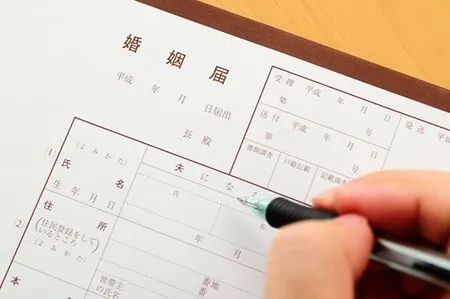 婚姻届
平成 年 月 日届出
長殿
受理 平成 年 月 日
第 号
送付 平成 年 月 日
第 号
書類調査 戸籍記載 記載調査
発送 平成
(1)
(よみかた)
氏名
生年月日
夫になる
氏
年 月
(2)
住所
(住民登録をして
いるところ)
(よみかた)
番地
番
世帯主
の氏名
本